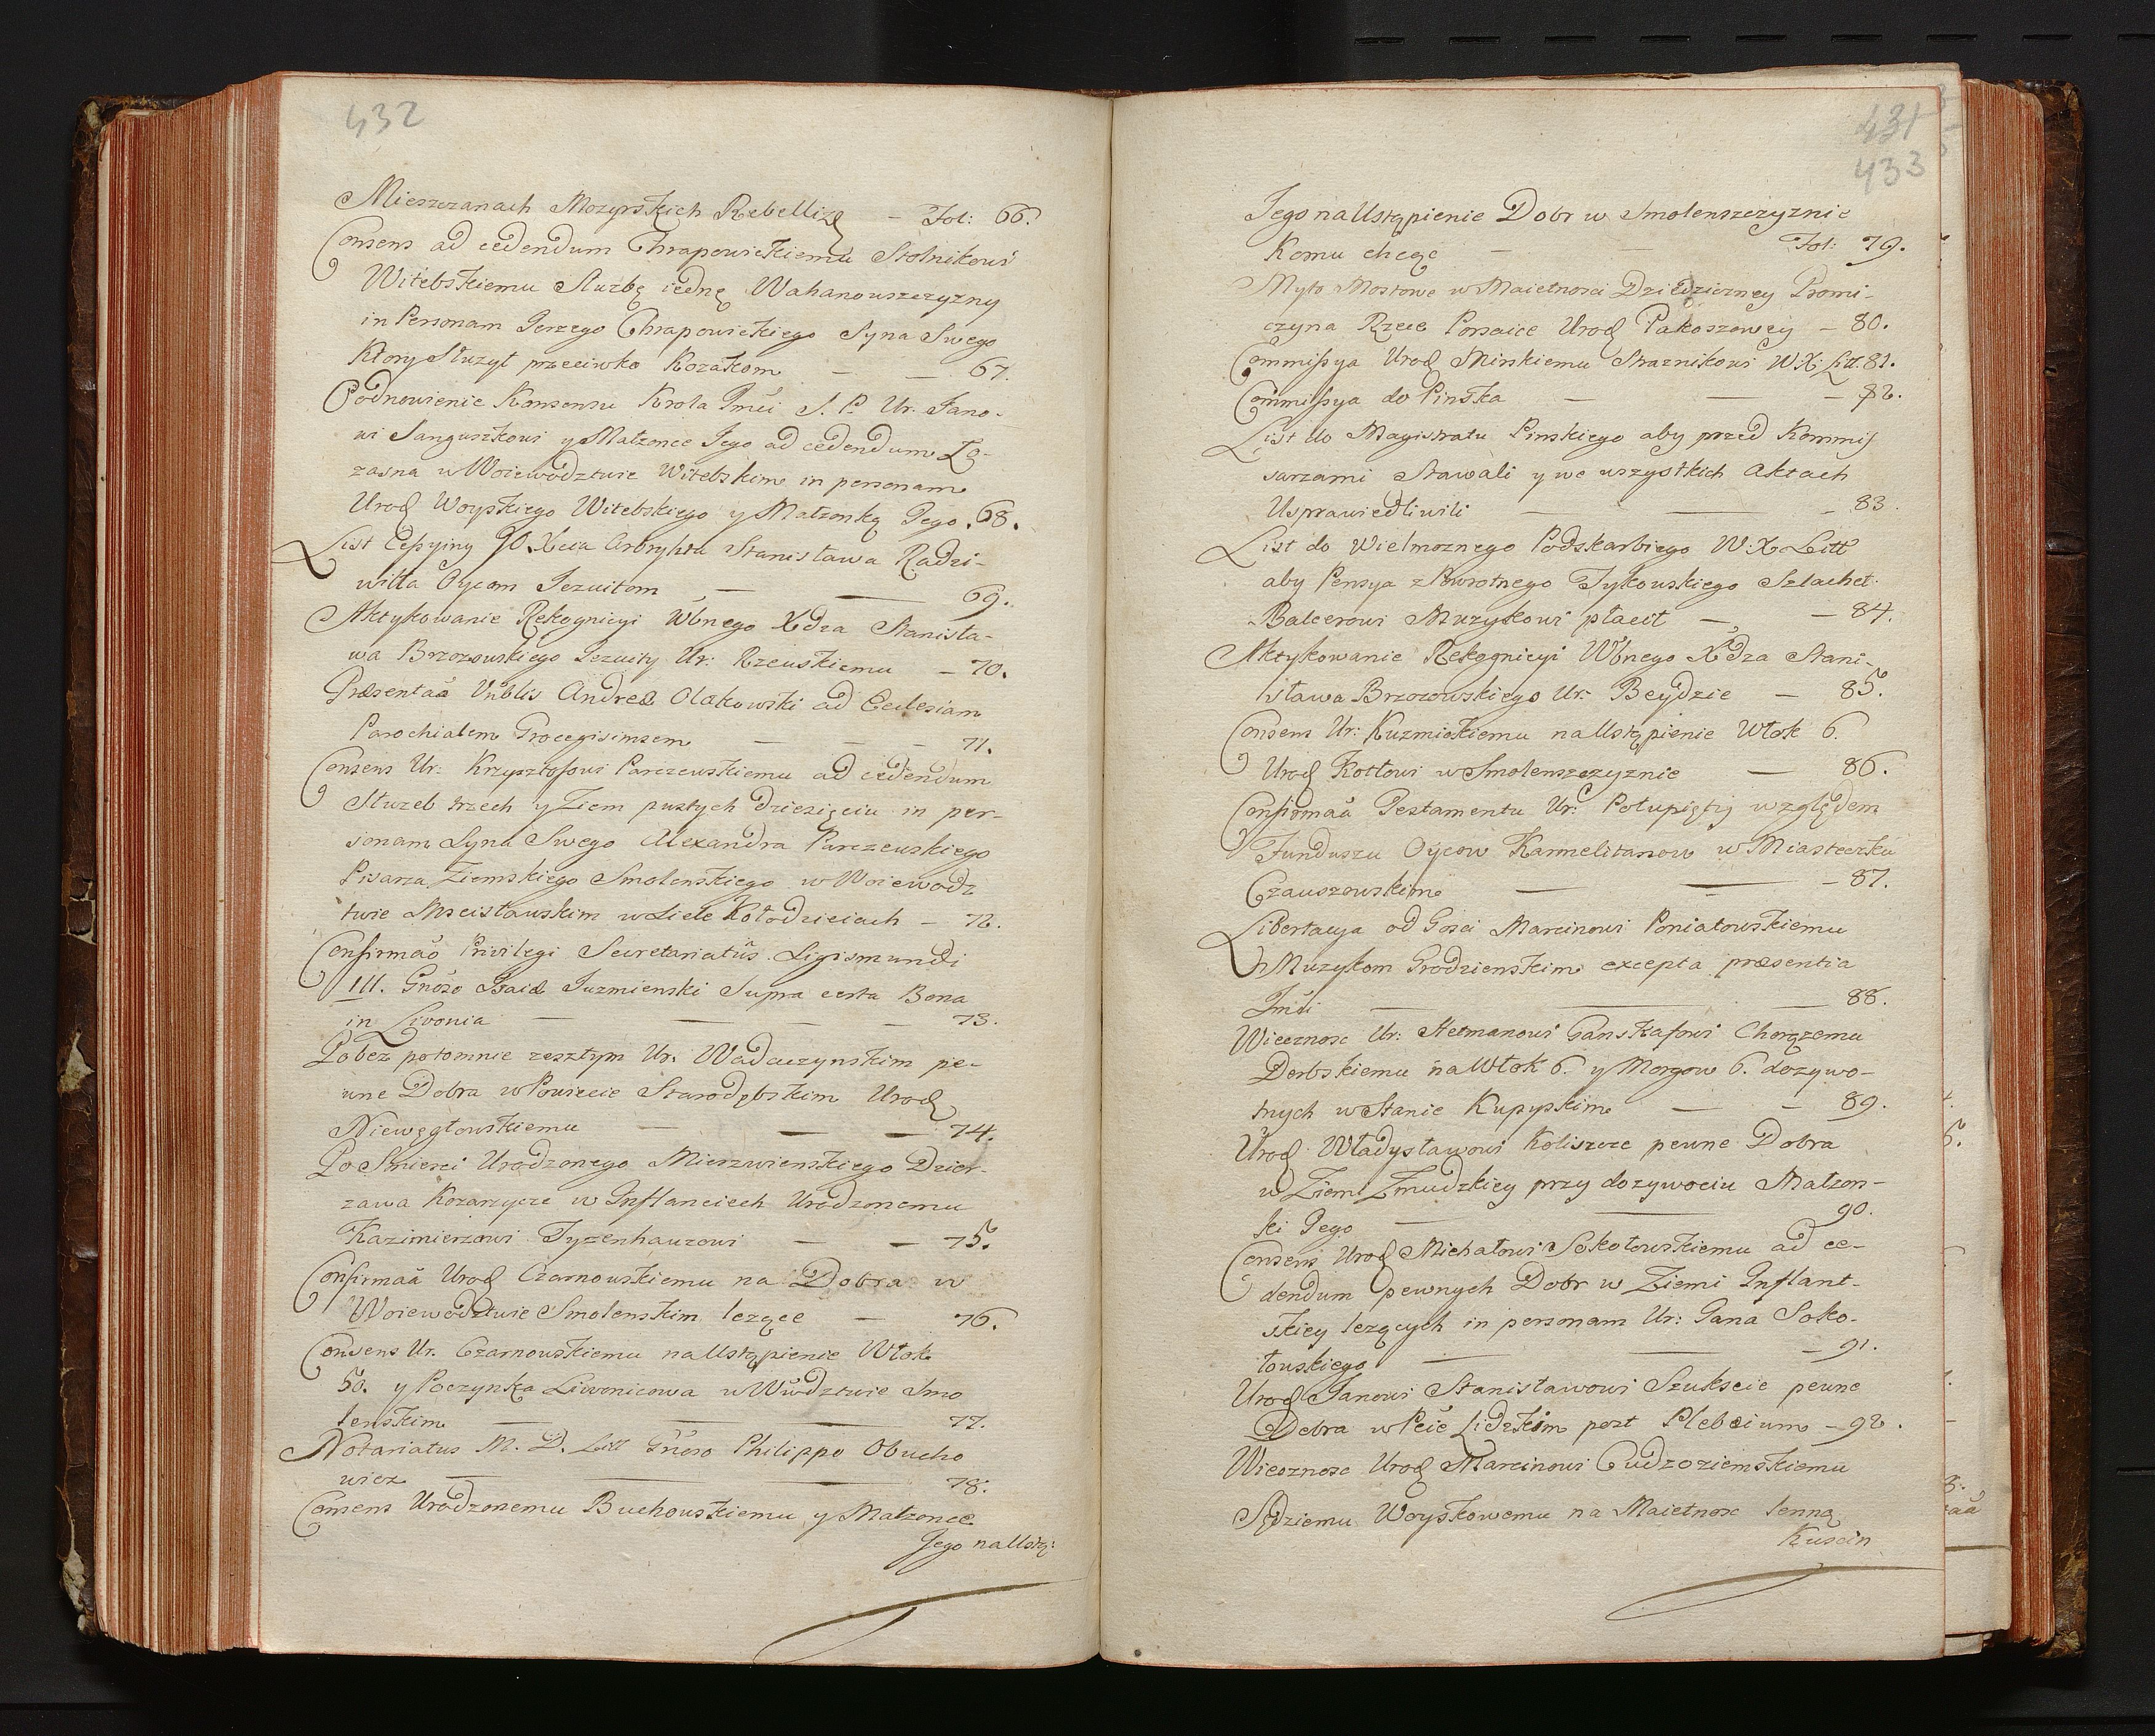 432
Mieszczanach Mozyrskich Rebellizą — Fol: 66.
Consens ad cedendum Chrapowickiemu Stolnikowi
Witebskiemu Służbę iednę Wahanowszczyzny
in Personam Jerzego Chrapowickiego Syna Swego
Ktory Służył przeciwko Kozakom — — 67.
Podnowienie Konsensu Krola Jmći S. P. Ur. Jano-
wi Sanguszkowi y Małżonce Jego ad cedendum Ło-
zasna w Woiewodztwie Witebskim in personam
Urod Woyskiego Witebskiego y Małżonką Jego. 68.
List Cessyiny JO. Xcia Albrychta Stanisława Radzi-
wiłła Oycom Jezuitom — — 69.
Aktykowanie Rekognicyi Wbnego Xdza Stanisła-
wa Brzozowskiego Jezuity Ur: Rzewskiemu — 70.
Præsentaã Vnblis Andreæ Olakowski ad Ecclesiam
Parochialem — — — 71.
Consens Ur: Krzysztofowi Parczewskiemu ad cedendum
Służeb trzech y Ziem pustych dziesięciu in per-
sonam Syna Swego Alexandra Parczewskiego
Pisarza Ziemskiego Smolenskiego w Woiewodz
twie Mscisławskim w Siele Kołodzieiach — 72.
Confirmaõ Privilegi Secretariatûs Sigismundi
III. Gnõso Isaiæ Juzmienski Supra certa Bona
in Livonia — — — — 73.
Po bez potomnie zeszłym Ur: Wadaczynskim pe-
wne Dobra w Powiecie Starodębskim Urod
Niewęgłowskiemu — — — 74.
Po Smierci Urodzonego Mierzwienskiego Dzier-
zawa Kozarzycze w Inflanciech Urodzonemu
Kazimierzowi Tyzenhauzowi — — 75.
Confirmaã Urod Czarnowskiemu na Dobra w
Woiewodztwie Smolenskim lezące — 76.
Consens Ur. Czarnowskiemu na Ustąpienie Włok
50. y Poczynka Liwonicowa w Wwdztwie Smo
lenskim — — — 77.
Notariatus M. D. Litt Gnõso Philippo Obucho
wicz — — — 78.
Consens Urodzonemu Buchowskiemu y Małżonce
Jego na Ustą:
431
433
Jego na Ustąpienie Dobr w Smolenszczyznie
Komu chcąc — — Fol: 79.
Myto Mostowe w Maietnosci Dziedziczney Promi-
czyna Rzece Porsaice Urod Pakoszowey — 80.
Commissya Urod Minskiemu Straznikowi W. X. Litt. 81.
Commissya do Pinska — — — 82.
List do Magistratu Pinskiego aby przed Kommis
sarzami Stawali y we wszystkich Aktach
Usprawiedliwili — — — 83.
List do Wielmoznego Podskarbiego W. X. Litt
aby Pensya z Powrotnego Tykowskiego Szlachet:
Balcerowi Muzykowi płacił — — 84.
Aktykowanie Rekognicyi Wbnego Xdza Stani-
sława Brzozowskiego Ur: Beydzie — 85.
Consens Ur: Kuzmickiemu na Ustąpienie Włok 6.
Urod Kotłowi w Smolenszczyznie — 86.
Confirmaã Testamentu Ur: Połupięty względem
Funduszu Oycow Karmelitanow w Miasteczku
Czauszowskim — — — 87.
Libertacya od Gosci Marcinowi Poniatowskiemu
Muzykom Grodzienskim excepta præsentia
Jmći — — — 88.
Wiecznosc Ur: Hermanowi Ganskafowi Chorązemu
Derbskiemu na Włok 6. y Morgow 6. dozywo-
tnych w Stanie Kupyskim — — 89.
Urod Władysławowi Koliszcze pewne Dobra
w Ziemi Zmudzkiey przy dozywociu Małzon-
ki Jego — — 90.
Consens Urod Michałowi Sokołowskiemu ad ce-
dendum pewnych Dobr w Ziemi Inflant-
skiey lezących in personam Ur: Gana Soko-
łowskiego — — — 91.
Urod Janowi Stanisławowi Szukscie pewne
Dobra w Pcie Lidzkim post Plebeium — 92.
Wiecznosc Urod Marcinowi Cudzoziemskiemu
Sędziemu Woyskowemu na Maietnosc lenną
Kuscin